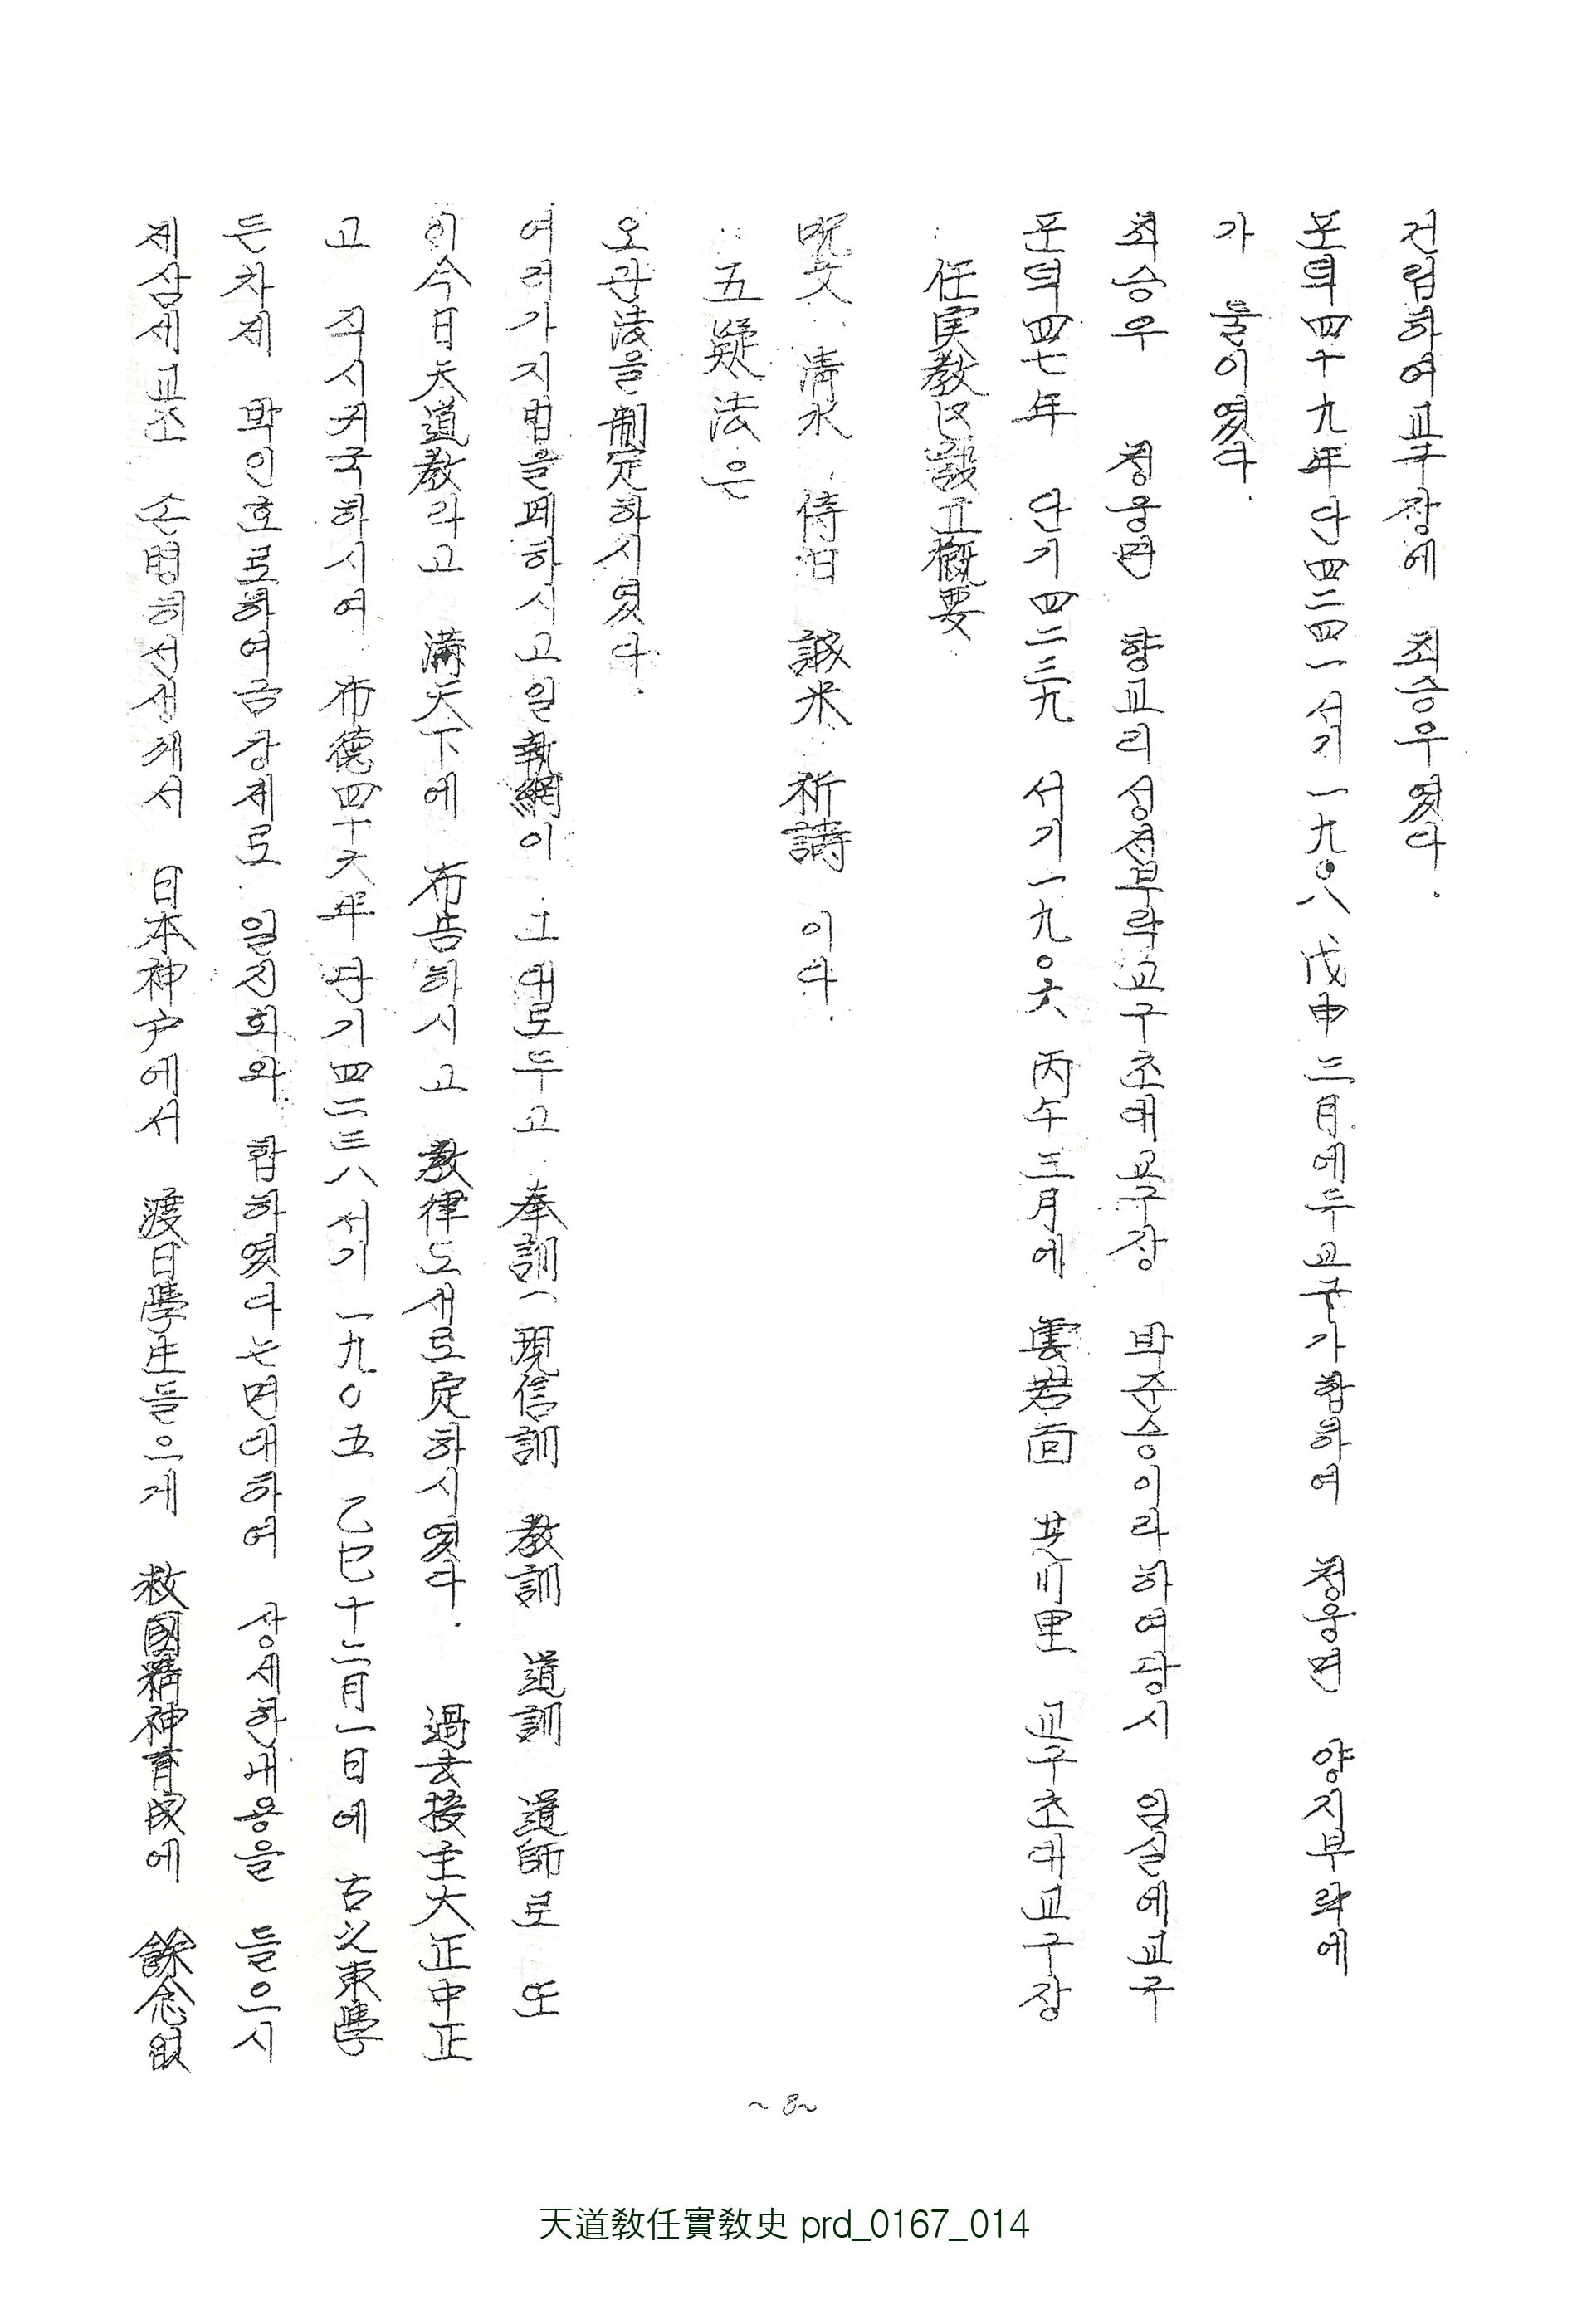 제삼세교조 손병히선생게서 日本神户에서 渡日學生들으게 救國精神育成에 餘念없
든차제 박인호로하여금강제로 일진회와 합하였다는면대하여 상세한내용을 들으시
고 직시귀국하시여 布德四十六年 단기四二三八서기 一九○五 乙巳十二月一日에 古之東學
이今日天道教라고 满天下에 布告하시고 教律도새로定하시였다. 過去接主大正中正
여러가지법을페하시고일執網이 그대로두고 奉訓(現信訓 教訓 道訓 道師로 또
오관法을制定하시였다.
‥五疑法은
呪文 淸水 侍日 誠米 祈禱 이다.
:任実教区設立概要
포덕四七年 단기四二三九 서기一九○六 丙午三月에 雲岩面 芝川里 교구초대교구장
최승우 청웅면 향교리성전부락교구초에교구장 박준승이라하여당시 임실에교구
가 둘이였다.
포덕四十九年단四二四一서기一九○八戊申三月에두교구가합하여 청웅면 양지부락에
건립하여교구장에 최승우였다.
~8~
天道敎任實敎史 prd_0167_014